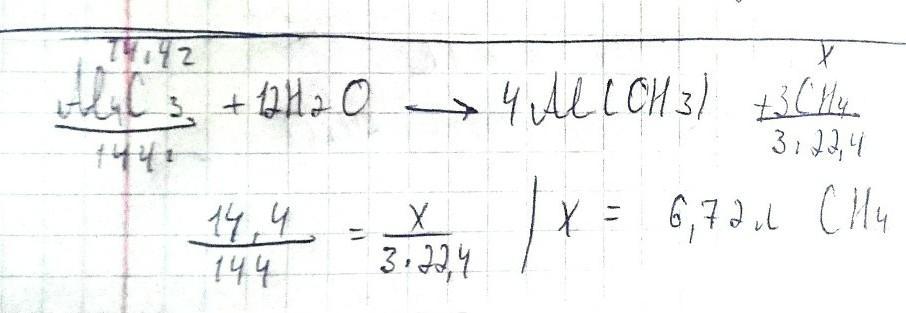 14,4г x
Al4C3 + 12H2O → 4Al(OH3) + 3CH4
144г 3·22,4
14,4/144 = x/3·22,4 | x = 6,72л CH4